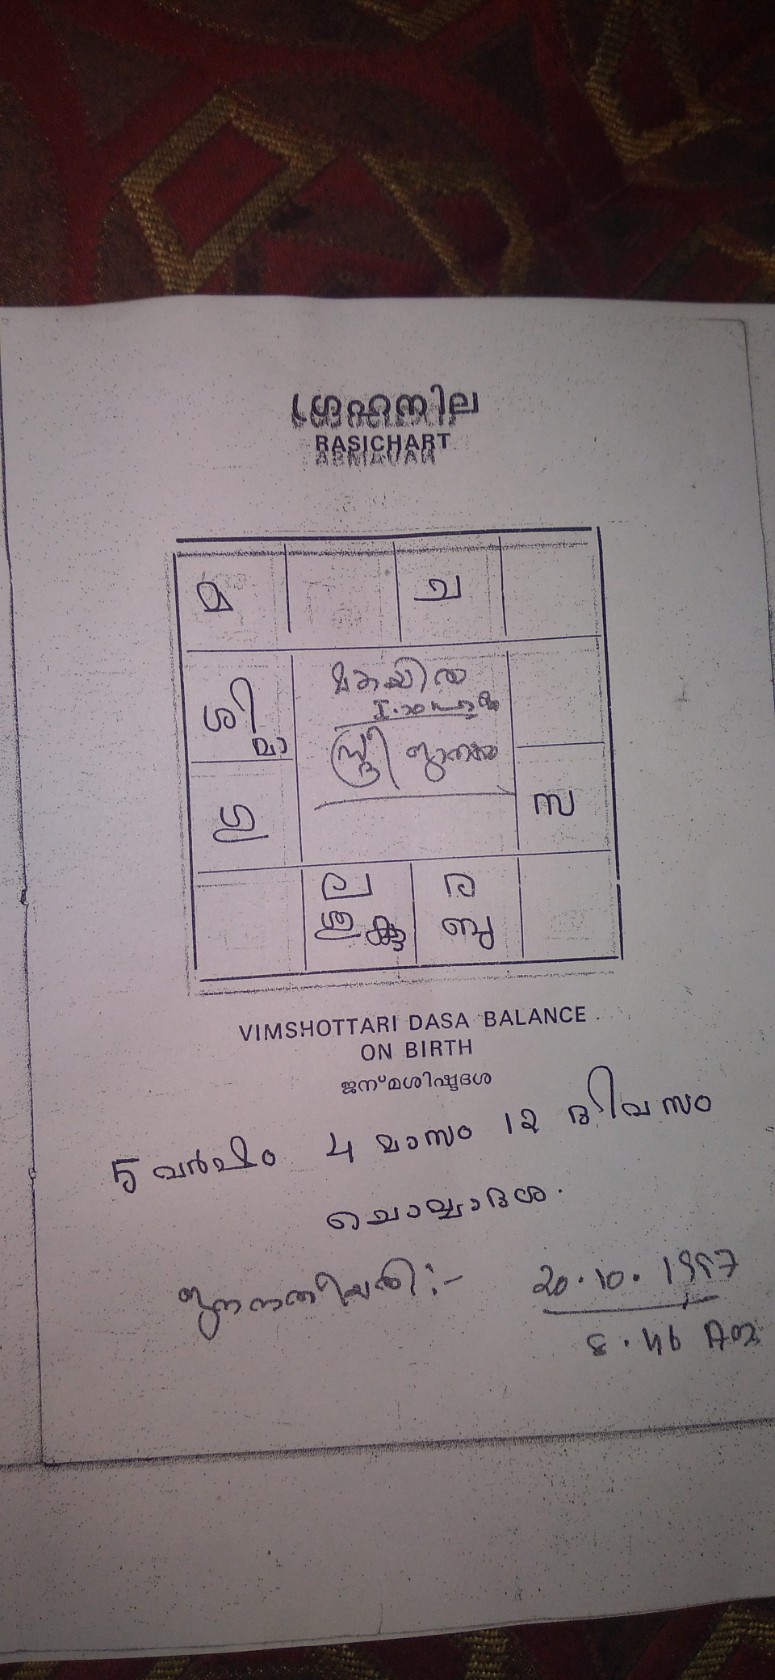 ഗ്രഹനില
RASICHART
മ ച
മകയിരം
ശി
മാ
സ്ത്രീ ജാതകം
ഗു
സ
ല ര
ശു കു ബു
VIMSHOTTARI DASA BALANCE
ON BIRTH
ജന്മശിഷ്ടദശ
5 വർഷം 4 മാസം 12 ദിവസം
ചൊവ്വാദശ.
ജനനതീയതി:- 20.10.1997
8.46 AM